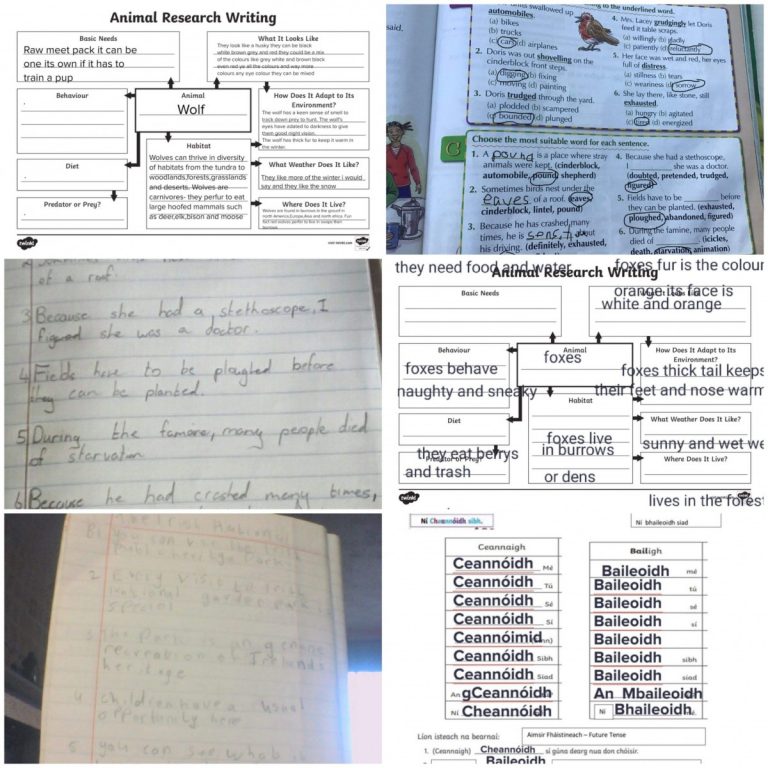 Animal Research Writing
Basic Needs
Raw meet pack it can be
one its own if it has to
train a pup
What It Looks Like
They look like a husky they can be black
white brown grey and red they could be a mix
of the colours like grey white and brown black
even red ye all the colours and way more
colours any eye colour they can be mixed
Behaviour
Animal
Wolf
How Does It Adapt to Its
Environment?
The wolf has a keen sense of smell to
track down prey to hunt. The wolf's
eyes have adated to darkness to give
them good night vision.
The wolf has thick fur to keep it warm in
the winter.
Habitat
Wolves can thrive in diversity
of habitats from the tundra to
woodlands,forests,grasslands
and deserts. Wolves are
carnivores- they perfur to eat
large hoofed mammals such
as deer,elk,bison and moose
Diet
What Weather Does It Like?
They like more of the winter i would
say and they like the snow
Predator or Prey?
Where Does It Live?
twinkl
visit twinkl.com
said.
swallowed up
automobiles.
(a) bikes
(b) trucks
(c) cars (d) airplanes
2. Doris was out shovelling on the
cinderblock front steps.
(a) digging (b) fixing
(c) moving (d) painting
3. Doris trudged through the yard.
(a) plodded (b) scampered
(c) bounded (d) plunged
to the underlined word.
4. Mrs. Lacey grudgingly let Doris
feed it table scraps.
(a) willingly (b) gladly
(c) patiently (d) reluctantly
5. Her face was wet and red, her eyes
full of distress.
(a) stillness (b) tears
(c) weariness (d) sorrow
6. She lay there, like stone, still
exhausted.
(a) hungry (b) agitated
(c) tired (d) energized
C
Choose the most suitable word for each sentence.
1. A pound is a place where stay
animals were kept. (cinderblock,
automobile, pound, shepherd)
2. Sometimes birds nest under the
eaves of a roof. (eaves,
cinderblock, lintel, pound)
3. Because he has crashed many
times, he is
his driving. (definitely, exhausted,
4. Because she had a stethoscope,
I she was a doctor.
(doubted, pretended, trudged,
figured)
5. Fields have to be before
they can be planted. (exhausted,
ploughed, abandoned, figured)
6. During the famine, many people
died of (icicles,
death, starvation, animation)
of a roof.
3 Because she had a stethoscope, I
figured she was a doctor.
4 Fields have to be ploughed before
they can be planted.
5 During the famine, many people died
of starvation
6 Because he had crashed many times,
they need food and water
foxes fur is the colour
Animal Research Writing
Basic Needs
orange its face is
white and orange
Behaviour
foxes behave
naughty and sneaky
Animal
foxes
How Does It Adapt to Its
Environment?
foxes thick tail keeps
their feet and nose warm
Habitat
foxes live
in burrows
or dens
Diet
they eat berrys
and trash
Predator or Prey?
What Weather Does It Like?
sunny and wet we
Where Does It Live?
lives in the forest
twinkl
2 Every visit to Irish
National garden park is
special
3 The Park is an
recreation of Irelands
heritage
4 children have a usual
opportunity here
5 you can see
Ní Cheannóidh sibh.
Ní bhaileoidh siad
Ceannaigh
Ceannóidh Mé
Ceannóidh Tú
Ceannóidh Sé
Ceannóidh Sí
Ceannóimid
Ceannóidh Sibh
Ceannóidh Siad
An gCeannóidh
Ní Cheannóidh
Bailigh
Baileoidh mé
Baileoidh tú
Baileoidh sé
Baileoidh sí
Baileoidh
Baileoidh sibh
Baileoidh siad
An Mbaileoidh
Ní Bhaileoidh
Líon isteach na bearnaí:
Aimsir Fháistineach – Future Tense
1. (Ceannaigh) Cheannóidh sí gúna dearg nua don chóisir.
2. Baileoidh